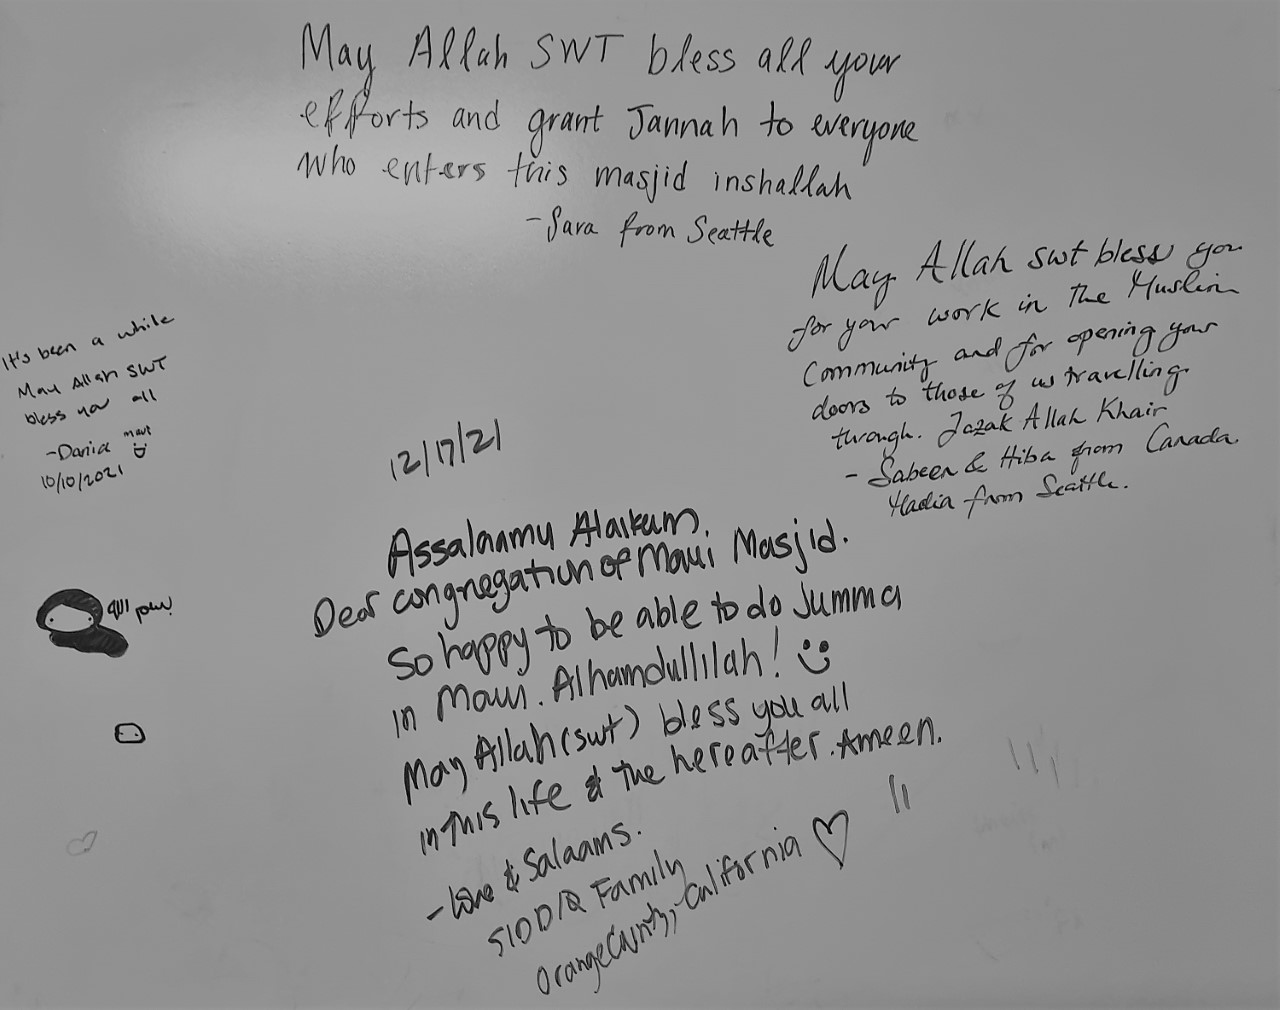 May Allah SWT bless all your
efforts and grant Jannah to everyone
who enters this masjid inshallah
-Sara from Seattle
May Allah swt bless you
for your work in the Muslim
Community and for opening your
doors to those of us travelling
through. Jazak Allah Khair
- Sabeen & Hiba from Canada
Hadia from Seattle.
It's been a while
May Allah SWT
bless you all
10/10/2021
12/17/21
Assalaamu Alaikum.
Dear congregation of Maui Masjid.
So happy to be able to do Jumma
in Maui. Alhamdullilah!
May Allah (swt) bless you all
in this life & the hereafter. Ameen.
- Love & Salaams.
SIDDIQ Family
Orange County, California